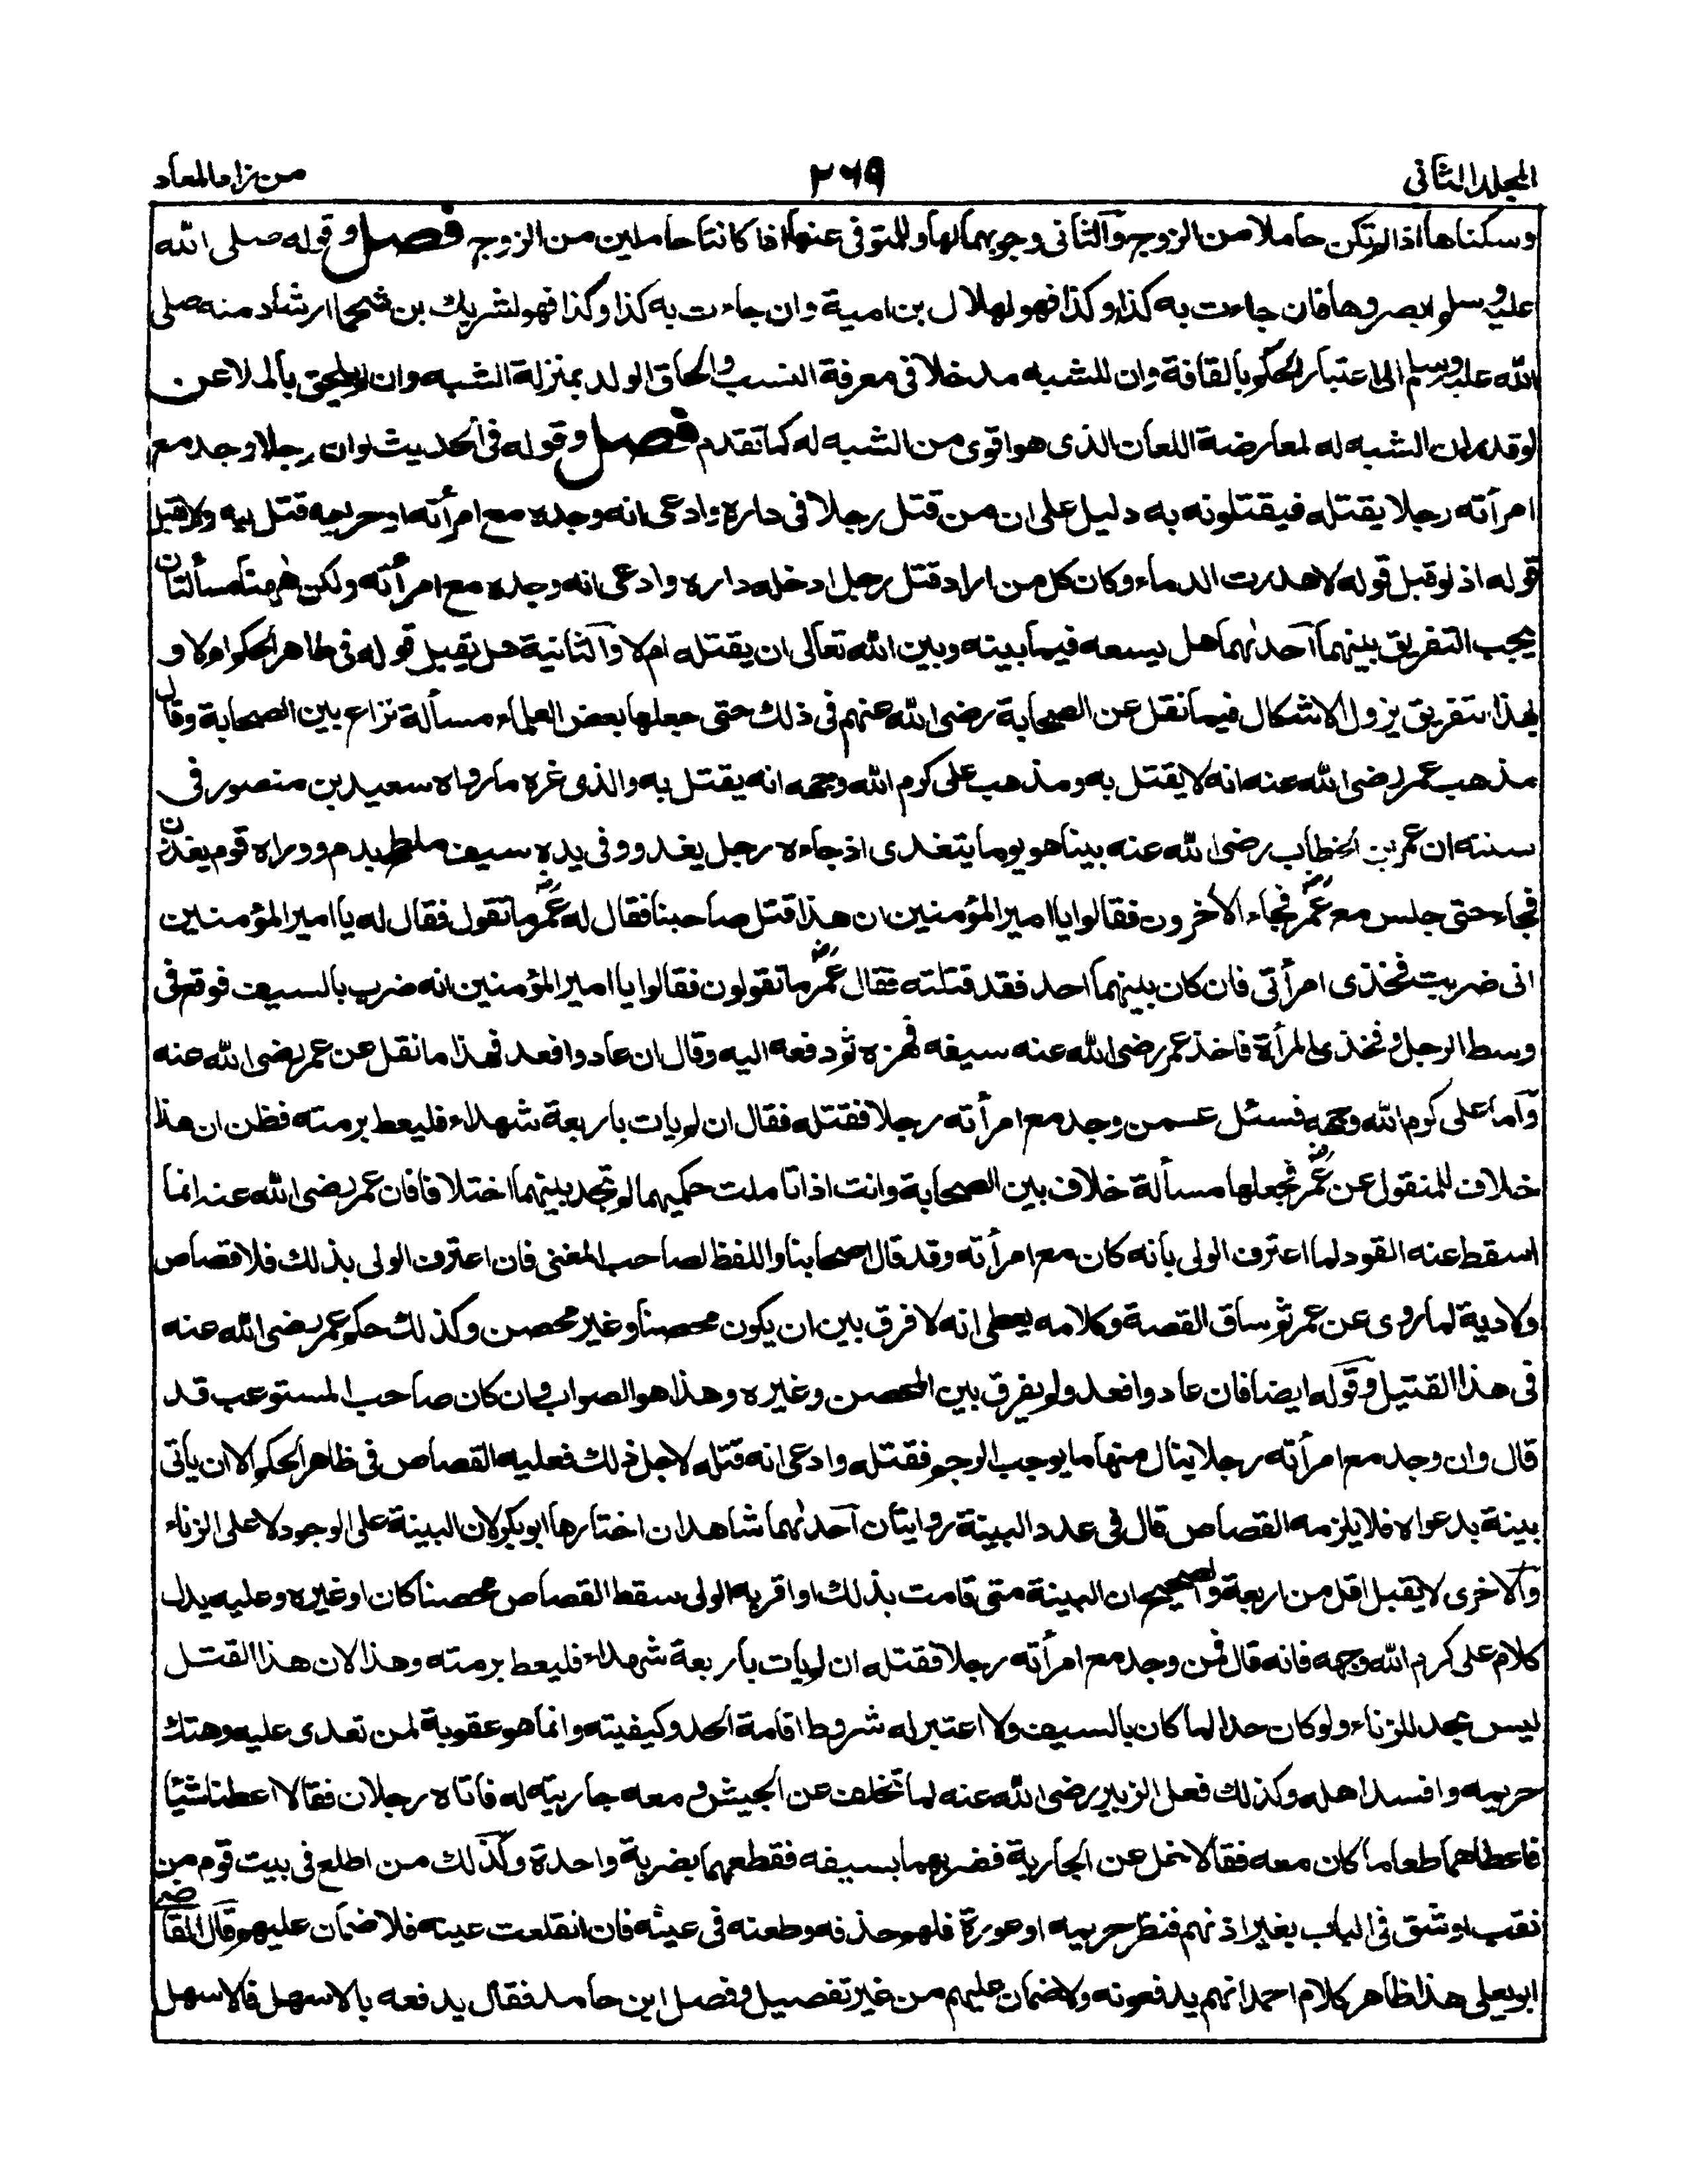 المجلد الثانی
٢٦٩
من زاد المعاد
وسكناها اذا لم تكن حاملا من الزوج والثانی وجوبهما لها وللمتوفی عنها اذا كانتا حاملين من الزوج فصل وقوله صلی الله
عليه وسلم ابصروها فان جاءت به كذا وكذا فهو لهلال بن امية وان جاءت به كذا وكذا فهو لشريك بن شحما ارشاد منه صلی
الله عليه وسلم الی اعتبار الحكم بالقافة وان للشبه مدخلا فی معرفة النسب والحاق الولد بمنزلة الشبه وان لم يلحق بالملاعن
لو قدر ان الشبه له لمعارضة اللعان الذی هو اقوی من الشبه له كما تقدم فصل وقوله فی الحديث لو ان رجلا وجد مع
امرأته رجلا يقتله فيقتلونه به دليل علی ان من قتل رجلا فی داره وادعی انه وجده مع امرأته او حريمه قتل به ولا يقبل
قوله اذ لو قبل قوله لاهدرت الدماء وكان كل من اراد قتل رجل ادخله داره وادعی انه وجده مع امرأته ولكن ههنا مسألتان
يجب التفريق بينهما احدٰهما هل يسعه فيما بينه وبين الله تعالی ان يقتله ام لا والثانية هل يقبل قوله فی ظاهر الحكم ام لا و
بهذا التفريق يزول الاشكال فيما نقل عن الصحابة رضی الله عنهم فی ذلك حتی جعلها بعض العلماء مسألة نزاع بين الصحابة وقال
مذهب عمر رضی الله عنه انه لا يقتل به ومذهب علی كرم الله وجهه انه يقتل به والذی غره ما رواه سعيد بن منصور فی
سننه ان عمر بن الخطاب رضی الله عنه بينا هو يوما يتغدی اذ جاءه رجل يغدو وفی يده سيف ملطخ بدم ووراه قوم يغدون
فجاء حتی جلس مع عمر فجاء الاخرون فقالوا يا امير المؤمنين ان هذا قتل صاحبنا فقال له عمر ما تقول فقال له يا امير المؤمنين
انی ضربت فخذی امرأتی فان كان بينهما احد فقد قتلته فقال عمر ما تقولون فقالوا يا امير المؤمنين انه ضرب بالسيف فوقع فی
وسط الرجل وفخذی المرأة فاخذ عمر رضی الله عنه سيفه فهزه ثم دفعه اليه وقال ان عادوا فعد فهذا ما نقل عن عمر رضی الله عنه
واما علی كرم الله وجهه فسئل عمن وجد مع امرأته رجلا فقتله فقال ان لم يات باربعة شهداء فليعط برمته فظن ان هذا
خلاف للمنقول عن عمر فجعلها مسألة خلاف بين الصحابة وانت اذا تاملت حكميهما لم تجد بينهما اختلافا فان عمر رضی الله عنه انما
اسقط عنه القود لما اعترف الولی بانه كان مع امرأته وقد قال اصحابنا واللفظ لصاحب المغنی فان اعترف الولی بذلك فلا قصاص
ولا دية لما روی عن عمر ثم ساق القصة وكلامه يعطی انه لا فرق بين ان يكون محصنا وغير محصن وكذلك حكم عمر رضی الله عنه
فی هذا القتيل وقوله ايضا فان عادوا فعد ولم يفرق بين المحصن وغيره وهذا هو الصواب وان كان صاحب المستوعب قد
قال وان وجد مع امرأته رجلا ينال منها ما يوجب الرجم فقتله وادعی انه قتله لاجل ذلك فعليه القصاص فی ظاهر الحكم الا ان ياتی
ببينة بدعواه فلا يلزمه القصاص قال فی عدد البينة روايتان احدٰهما شاهدان اختارها ابوبكر لان البينة علی الوجود لا علی الزناء
والاخری لا يقبل اقل من اربعة والصحيح ان البينة متی قامت بذلك او اقر به الولی سقط القصاص محصنا كان او غيره وعليه يدل
كلام علی كرم الله وجهه فانه قال فمن وجد مع امرأته رجلا فقتله ان لم يات باربعة شهداء فليعط برمته وهذا لان هذا القتل
ليس بحد للزناء ولو كان حدا لما كان بالسيف ولا اعتبر له شروط اقامة الحد وكيفيته وانما هو عقوبة لمن تعدی عليه وهتك
حريمه وافسد اهله وكذلك فعل الزبير رضی الله عنه لما تخلف عن الجيش و معه جاريته له فاتاه رجلان فقالا اعطنا شيئا
فاعطاهما طعاما كان معه فقالا خل عن الجارية فضربهما بسيفه فقطعهما بضربة واحدة وكذلك من اطلع فی بيت قوم من
نقب او شق فی الباب بغير اذنهم فنظر حريمه او عورة فلهم حذفه وطعنه فی عينه فان انقلعت عينه فلا ضمان عليهم وقال القاضی
ابو يعلی هذا ظاهر كلام احمد انهم يدفعونه ولا ضمان عليهم من غير تفصيل وفصل ابن حامد فقال يدفعه بالاسهل فالاسهل